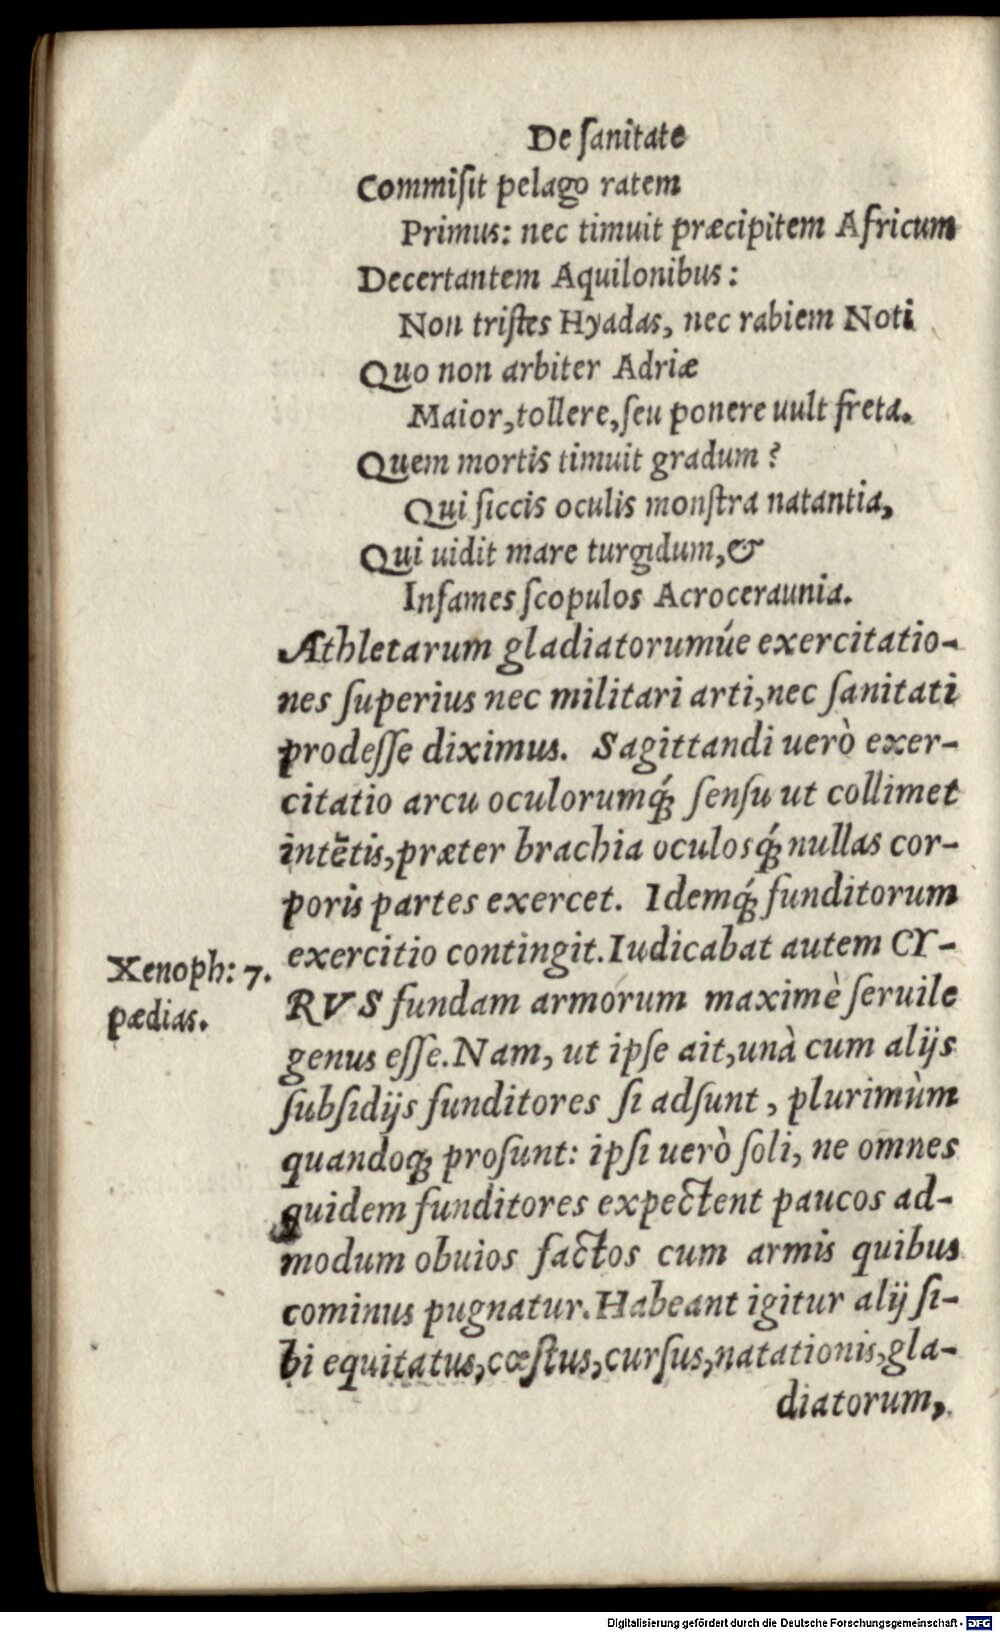 De ſanitate
Commiſit pelago ratem
Primus: nec timuit præcipitem Africum
Decertantem Aquilonibus:
Non triſtes Hyadas, nec rabiem Noti
Quo non arbiter Adriæ
Maior, tollere, ſeu ponere uult freta.
Quem mortis timuit gradum?
Qui ſiccis oculis monſtra natantia,
Qui uidit mare turgidum, &
Infames ſcopulos Acroceraunia.
Athletarum gladiatorumúe exercitatio-
nes ſuperius nec militari arti, nec ſanitati
prodeſſe diximus. Sagittandi uerò exer-
citatio arcu oculorumq́; ſenſu ut collimet
intẽtis, præter brachia oculosq́; nullas cor-
poris partes exercet. Idemq́; funditorum
exercitio contingit. Iudicabat autem CY-
Xenoph: 7.
pædias.
RVS fundam armorum maximè ſeruile
genus eſſe. Nam, ut ipſe ait, unà cum alijs
ſubſidijs funditores ſi adſunt, plurimùm
quandoq; proſunt: ipſi uerò ſoli, ne omnes
quidem funditores expectent paucos ad-
modum obuios factos cum armis quibus
cominus pugnatur. Habeant igitur alij ſi-
bi equitatus, cœſtus, curſus, natationis, gla-
diatorum,
Digitalisierung gefördert durch die Deutsche Forschungsgemeinschaft - DFG